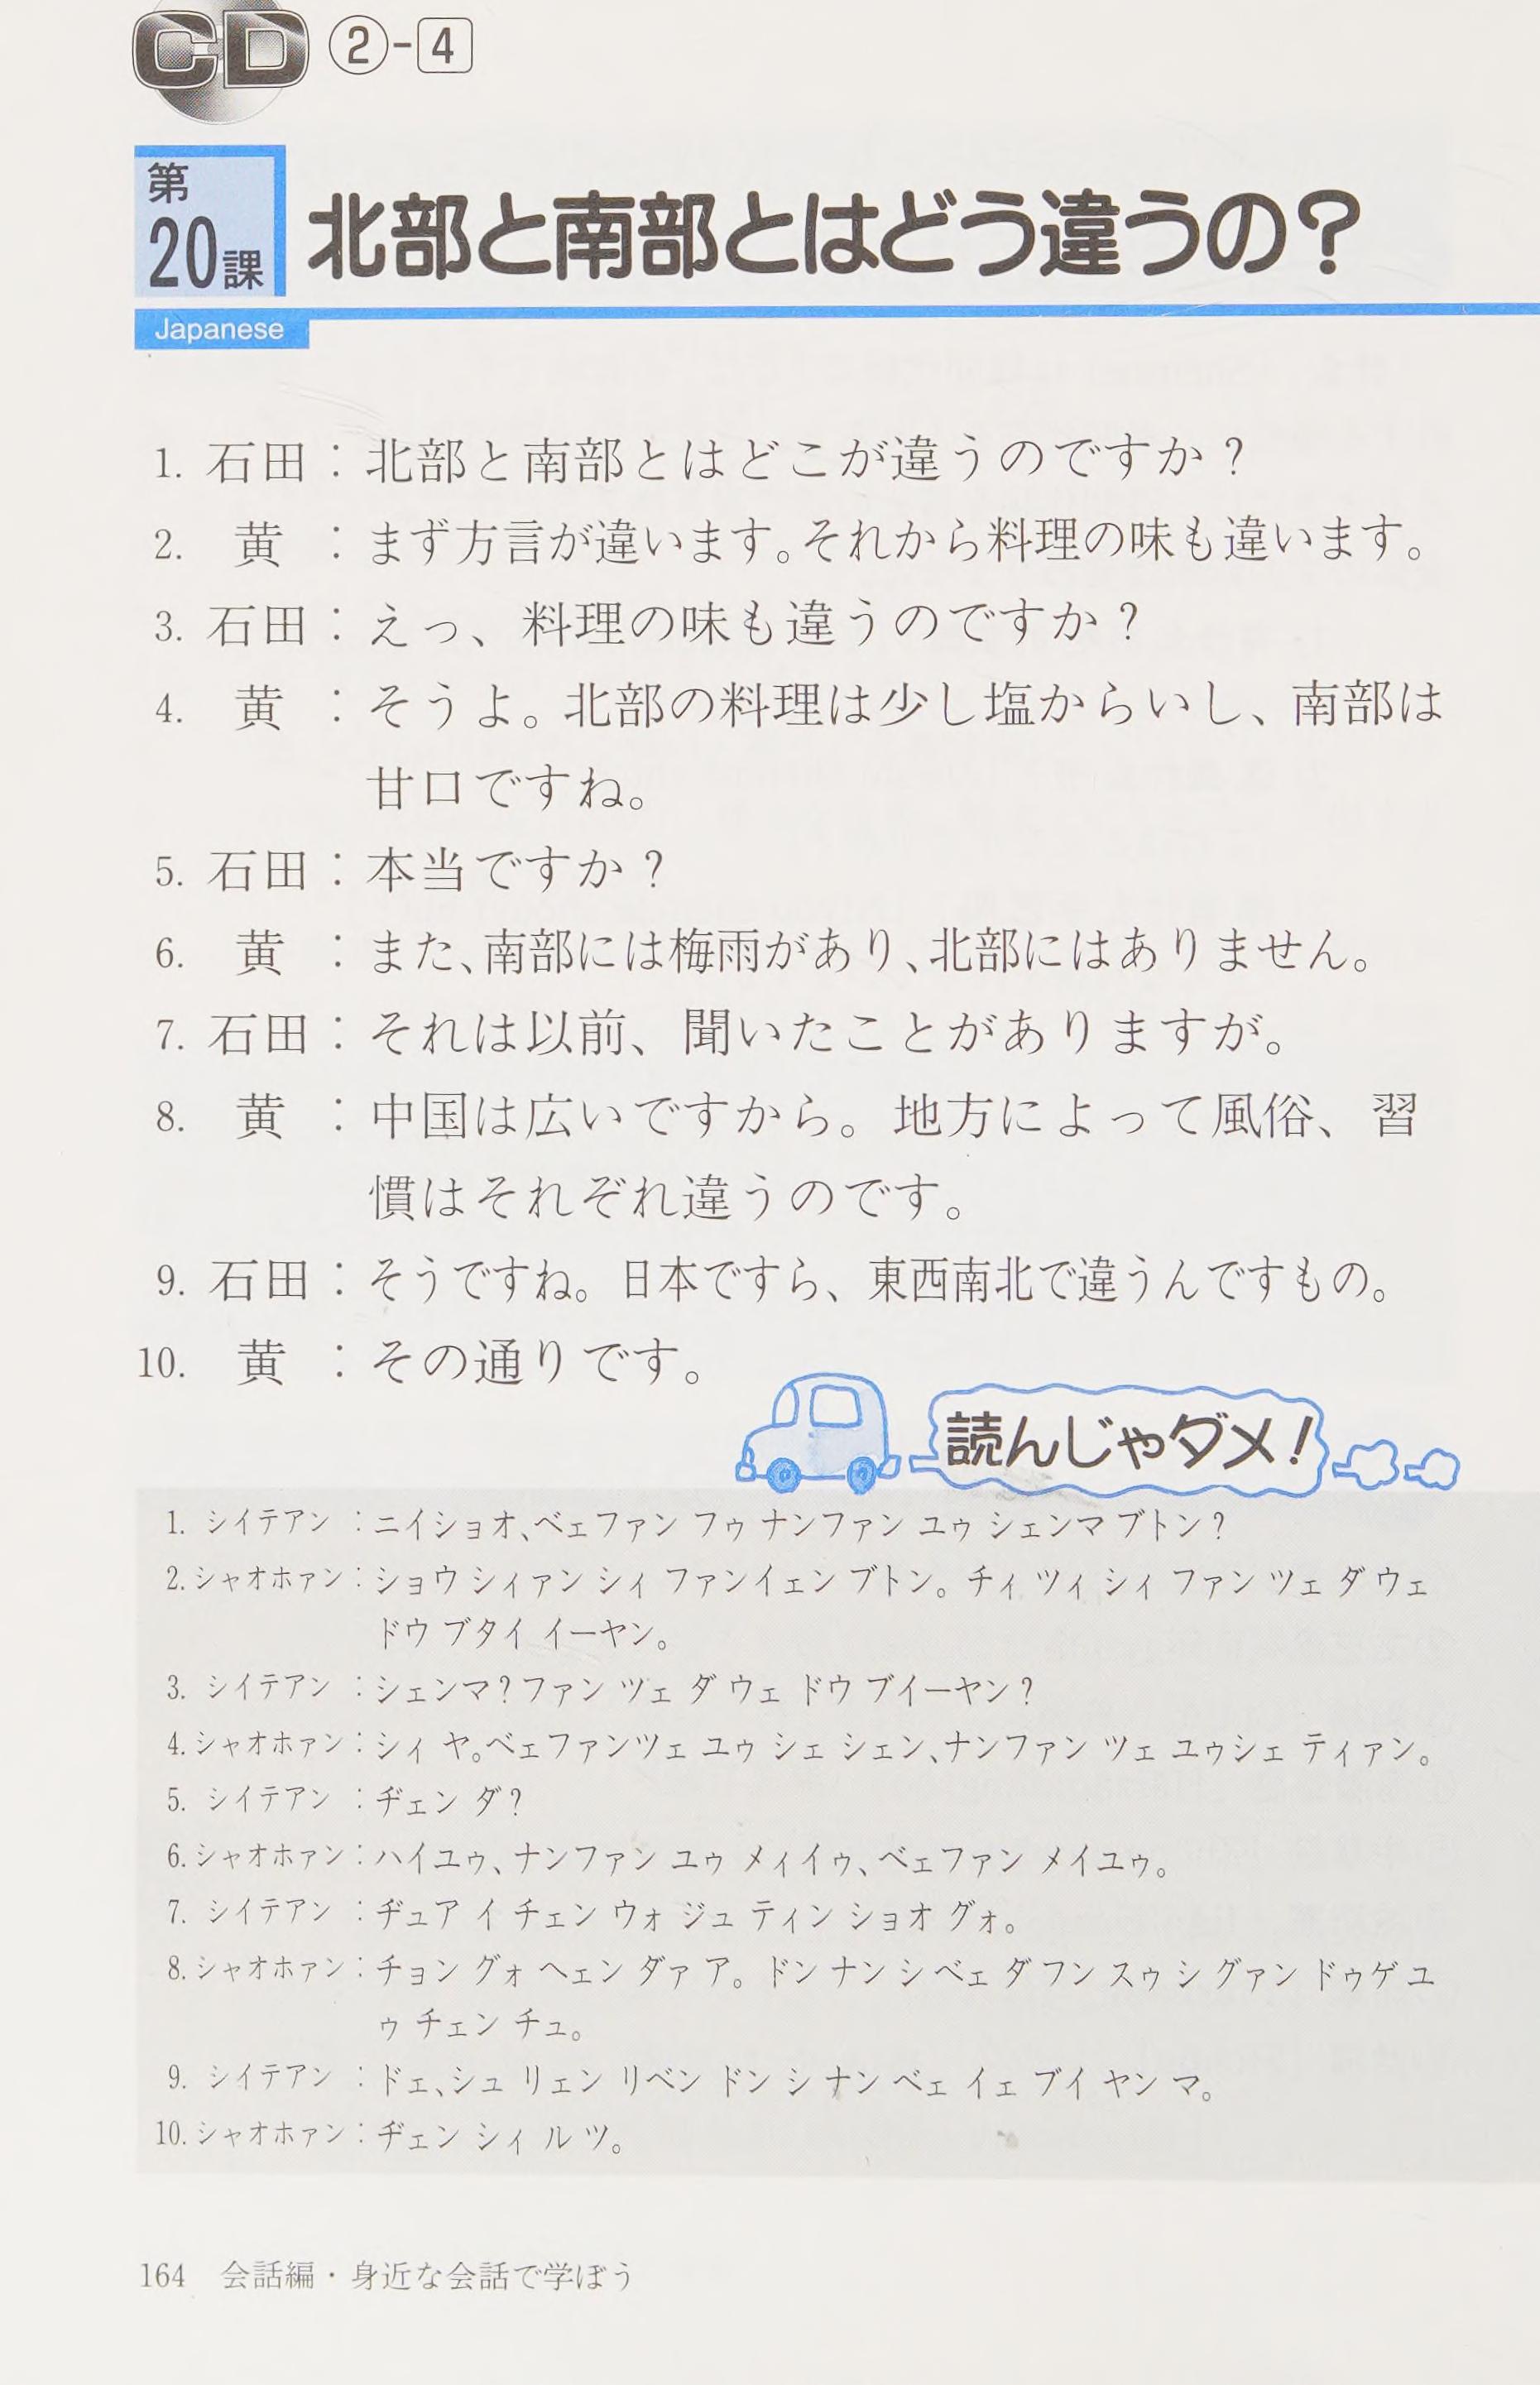 CD ②-4
第20課 北部と南部とはどう違うの？
Japanese
1. 石田：北部と南部とはどこが違うのですか？
2. 黄：まず方言が違います。それから料理の味も違います。
3. 石田：えっ、料理の味も違うのですか？
4. 黄：そうよ。北部の料理は少し塩からいし、南部は
甘口ですね。
5. 石田：本当ですか？
6. 黄：また、南部には梅雨があり、北部にはありません。
7. 石田：それは以前、聞いたことがありますが。
8. 黄：中国は広いですから。地方によって風俗、習
慣はそれぞれ違うのです。
9. 石田：そうですね。日本ですら、東西南北で違うんですもの。
10. 黄：その通りです。
読んじゃダメ！
1. シイテアン：ニイショオ、ベェファン フゥ ナンファン ユゥ シェンマ ブトン？
2. シャオホァン：ショウ シィァン シィ ファンイェン ブトン。チィ ツィ シィ ファン ツェ ダ ウェ
ドウ ブタイ イーヤン。
3. シイテアン：シェンマ？ファン ツェ ダ ウェ ドウ ブイーヤン？
4. シャオホァン：シィ ヤ。ベェファンツェ ユゥ シェ シェン、ナンファン ツェ ユゥシェ ティァン。
5. シイテアン：ヂェン ダ？
6. シャオホァン：ハイユゥ、ナンファン ユゥ メィイゥ、ベェファン メイユゥ。
7. シイテアン：ヂュア イ チェン ウォ ジュ ティン ショオ グォ。
8. シャオホァン：チョン グォ ヘェン ダァ ア。ドン ナン シ ベェ ダ フン スゥ シ グァン ドゥゲ ユ
ゥ チェン チュ。
9. シイテアン：ドェ、シュ リェン リベン ドン シ ナン ベェ イェ ブイ ヤン マ。
10. シャオホァン：ヂェン シィ ル ツ。
164 会話編・身近な会話で学ぼう